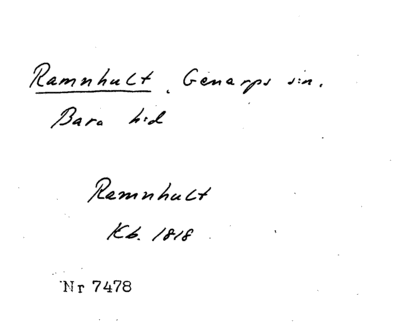 Ramnhult, Genarps sn.
Bara hd
Ramnhult
Kb. 1818
Nr 7478